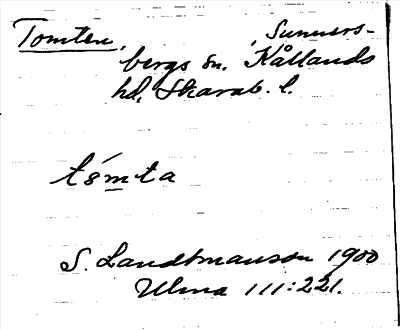 Tomten, Sunners-
bergs sn. Kållands
hd, Skarab. l.
tómta
S. Landtmanson 1900
Ulma 111:221.